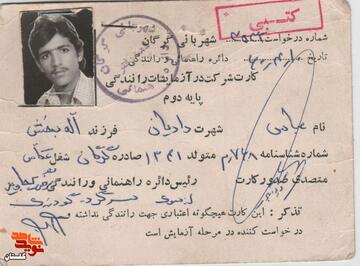 کتبی
شماره درخواست
شهربانی گرگان
تاریخ
دائره راهنمائی و رانندگی
کارت شرکت در آزمایشات رانندگی
پایه دوم
نام عباس شهرت دادیان فرزند اله بخش
شماره شناسنامه ۷۲۸ متولد ۱۳۴۱ صادره گرگان شغل عکاس
متصدی صدور کارت رئیس دائره راهنمائی و رانندگی
تذکر : این کارت هیچگونه اعتباری جهت رانندگی نداشته
درخواست کننده در مرحله آزمایش است
نوید شاهد
گلستان